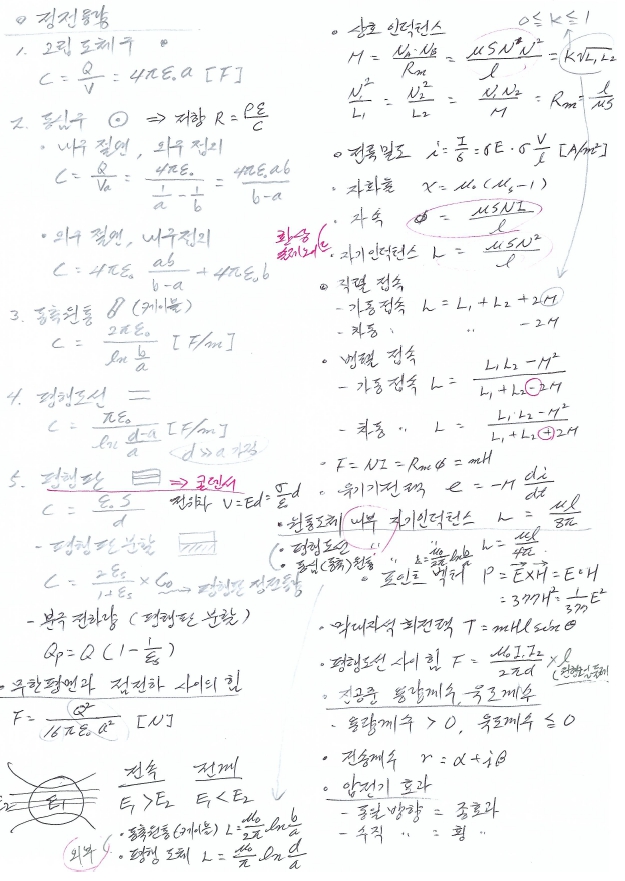 ◦ 정전용량
1. 고립 도체구
C = Q/V = 4πε₀a [F]
2. 동심구 ⊙ ⇒ 저항 R = ρε/C
• 내구 절연, 외구 접지
C = Q/Va = 4πε₀/(1/a - 1/b) = 4πε₀ab/(b-a)
• 외구 절연, 내구접지
C = 4πε₀ ab/(b-a) + 4πε₀b
3. 동축원통 (케이블)
C = 2πε₀/(ln b/a) [F/m]
4. 평행도선
C = πε₀/(ln (d-a)/a) [F/m]
d≫a 가정
5. 평행판 ⇒ 콘덴서
C = ε₀S/d 전위차 V=Ed=σ/ε₀ d
- 평행판 분할
C = 2εs/(1+εs) × C₀ → 평행판 정전용량
- 분극 전하량 (평행판 분할)
Qp = Q(1 - 1/εs)
• 무한평면과 점전하 사이의 힘
F = Q²/(16πε₀a²) [N]
E₂ E₁
전속 전계
E₁>E₂ E₁<E₂
외부
• 동축원통(케이블) L = μ₀/2π ln b/a
• 평행 도체 L = μ₀/π ln d/a
• 상호 인덕턴스 0≦k≦1
M = NA·NB/Rm = μSN²N²/l = K√L₁L₂
N₁²/L₁ = N₂²/L₂ = N₁N₂/M = Rm = l/μS
• 전류밀도 i = I/S = σE = σ V/l [A/m²]
• 자화율 χ = μ₀(μs-1)
• 자속 φ = μSNI/l
• 자기인덕턴스 L = μSN²/l
◦ 직렬 접속
- 가동접속 L = L₁ + L₂ + 2M
- 차동 〃 〃 - 2M
• 병렬 접속
- 가동접속 L = (L₁L₂-M²)/(L₁+L₂-2M)
- 차동 〃 L = (L₁·L₂-M²)/(L₁+L₂+2M)
• F = NI = Rmφ = mH
• 유기기전력 e = -M di/dt
• 원통도체 내부 자기인덕턴스 L = μl/8π
• 평행도선 〃 〃 L = μl/4π
• 동심(동축)원통 〃 L = μ₀/2π ln b/a
• 포인트 벡터 P = E×H = E·H
= 377H² = 1/377 E²
• 막대자석 회전력 T = mHl sinθ
• 평행도선 사이 힘 F = μ₀I₁I₂/2πd × l
• 진공중 용량계수, 유도계수
- 용량계수 > 0, 유도계수 ≦ 0
• 전송계수 r = α + jβ
• 압전기 효과
- 동일 방향 = 종효과
- 수직 〃 = 횡 〃